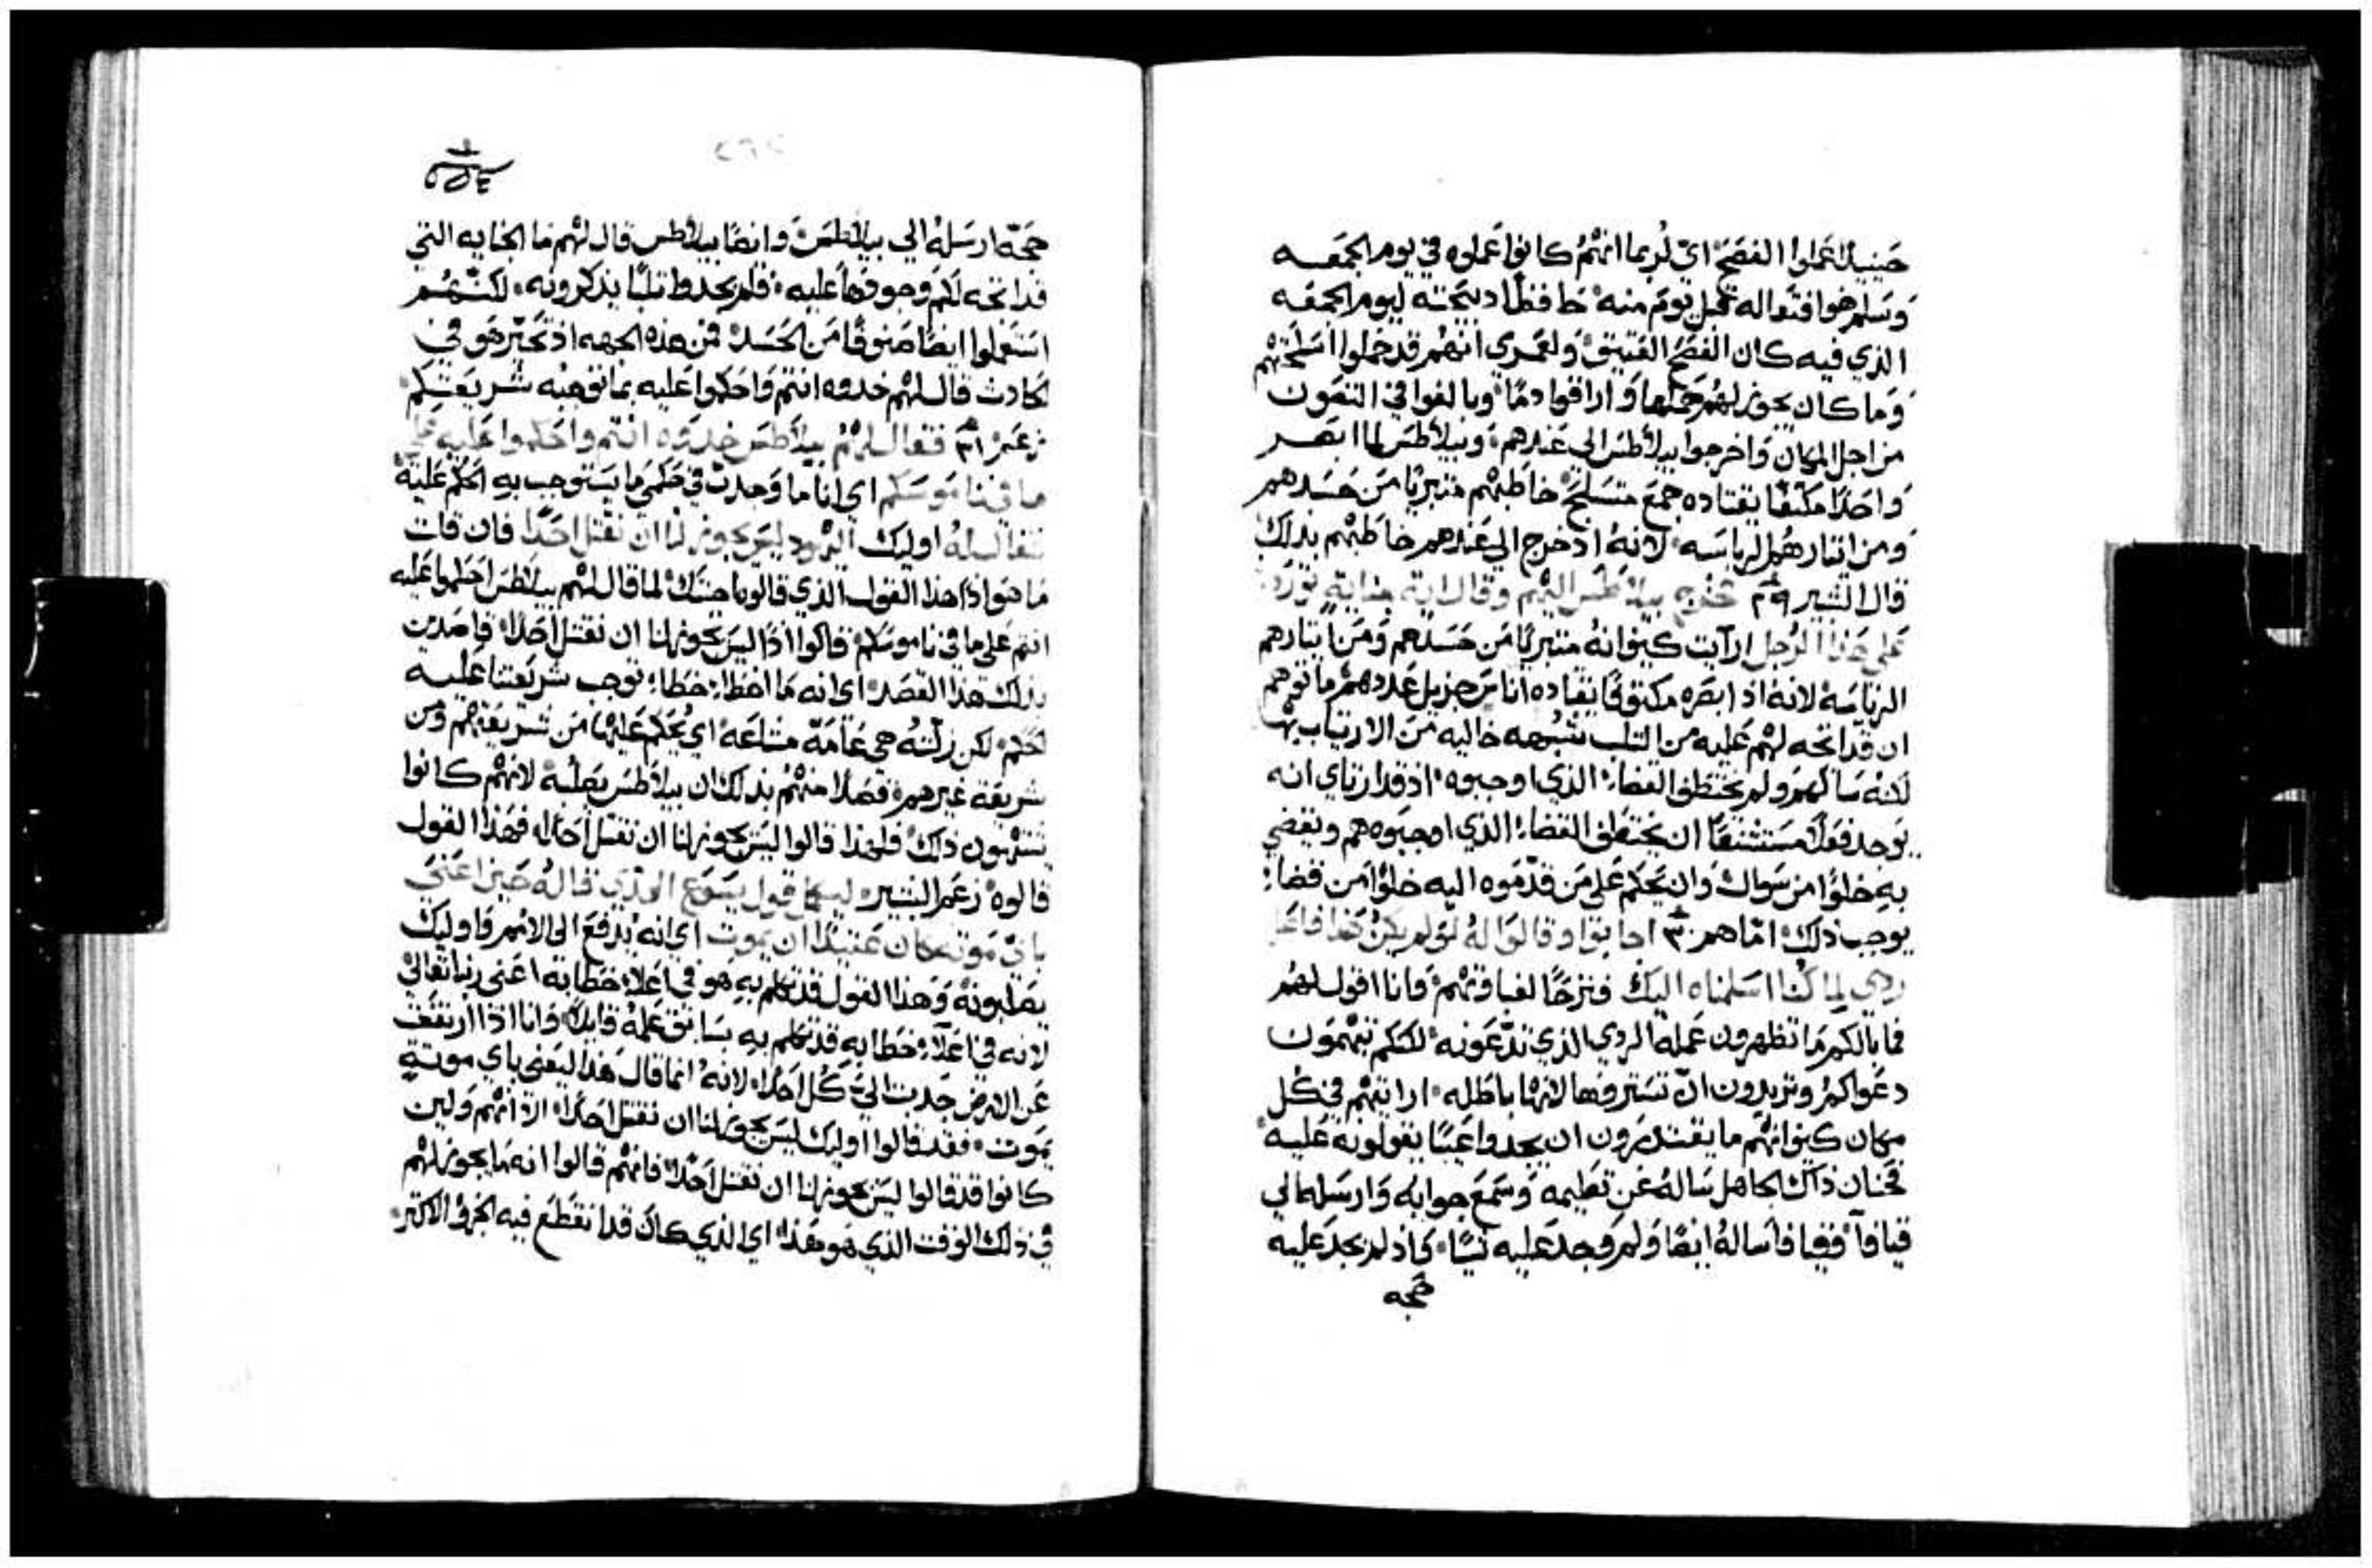 حينيذ عملوا الفصح اي لربما انهم كانوا عملوه في يوم الجمعه
وسلم هوا فتعاله قبل يوم منه حافظا دبيحته ليوم الجمعه
الذي فيه كان الفصح العتيق ولعمري انهم قد حملوا اسلحتهم
وما كان يجوز لهم حملها واراقوا دما وبالغوا في التصون
من اجل المكان واخرجوا بيلاطس الى عندهم وبيلاطس لما ابصر
واحدا مكتفا يقتاده جمع متسلح خاطبهم متبريا من حسدهم
ومن ايثارهم الرياسه لانه اذ خرج الى عندهم خاطبهم بذلك
قال البشير ٢٩ فخرج بيلاطس اليهم وقال اية جناية توردون
على هذا الرجل ارايت كيف انه متبريا من حسدهم ومن ايثارهم
الرياسه لانه اذ ابصره مكتوفا يقتاده اناس جزيل عددهم ما توهم
ان قد اتجه لهم عليه من الثلب شبهه خاليه من الارتياب بها
لكنه سالهم ولم يختطف القضاء الذي اوجبوه اذ قد ارتاي انه
يوجد فعلا مستشنعا ان يختطف القضاء الذي اوجبوه هم ويقضي
به خلوا من سوال وان يحكم على من قدموه اليه خلوا من قضاء
يوجب ذلك اما هم ٣٠ اجابوا وقالوا له لو لم يكن هذا فاعل
ردي لما كنا اسلمناه اليك فترحا لغباوتهم وانا اقول لهم
فما بالكم ما تظهرون عمله الردي الذي تدعونه لكنكم تتممون
دعواكم وتريدون ان تستروها لانها باطله ارايتهم في كل
مكان كيف انهم ما يقتدرون ان يجدوا عيبا يقولونه عليه
فحنان ذاك الجاهل ساله عن تعليمه وسمع جوابه وارسله الى
قيافا وقيافا ساله ايضا ولم وجد عليه شيا واذ لم يجد عليه
حجه
١
٥٥٤
٢٦٢
حجه ارسله الي بيلاطس وايضا بيلاطس قال لهم ما الجنايه التي
قد اتجه لكم وجودها عليه فلم يجدوا ثلبا يذكرونه لكنهم
استعملوا ايضا صنوفا من الحسد فمن هذه الجهه اذ تحير هو في
الحادث قال لهم خذوه انتم واحكموا عليه بما توجبه شريعتكم
زعم ٣١ فقال لهم بيلاطس خذوه انتم واحكموا عليه على
ما في ناموسكم اي انا ما وجدت في حكمي ما يستوجب به الحكم عليه
فقال له اوليك اليهود ليس يجوز لنا ان نقتل احدا فان قلت
ما هو اذا هذا القول الذي قالوه حينيذ لما قال لهم بيلاطس احكموا عليه
انتم على ما في ناموسكم قالوا اذا ليس يجوز لنا ان نقتل احدا قاصدين
بذلك هذا القصد اي انه ما اخطا خطاء توجب شريعتنا عليه
الحكم لكن زلته هي عامة مشاعه اي يحكم عليها من شريعتهم ومن
شريعة غيرهم قصدا منهم بذلك ان بيلاطس يصلبه لانهم كانوا
يشتهون ذلك فلهذا قالوا ليس يجوز لنا ان نقتل احدا فهذا القول
قالوه زعم البشير ليكمل قول يسوع الذي قاله حين اعنى
باي موته كان عتيدا ان يموت اي انه يدفع الى الامم واوليك
يصلبونه وهذا القول قد تكلم به هو في اعلاء خطابه اعني ربنا تعالى
لانه في اعلاء خطابه قد تكلم به سابق علمه قايلا وانا اذا ارتفعت
عن الارض جدبت الي كل احد لانه انما قال هذا ليعني باي موتة
يموت فقد قالوا اوليك ليس يجوز لنا ان نقتل احدا اراد انهم ولين
كانوا قد قالوا ليس يجوز لنا ان نقتل احدا فانهم قالوا انه ما يجوز لهم
في ذلك الوقت الذي هو هذا اي الذي كان قد انقطع فيه الجزو الاكثر